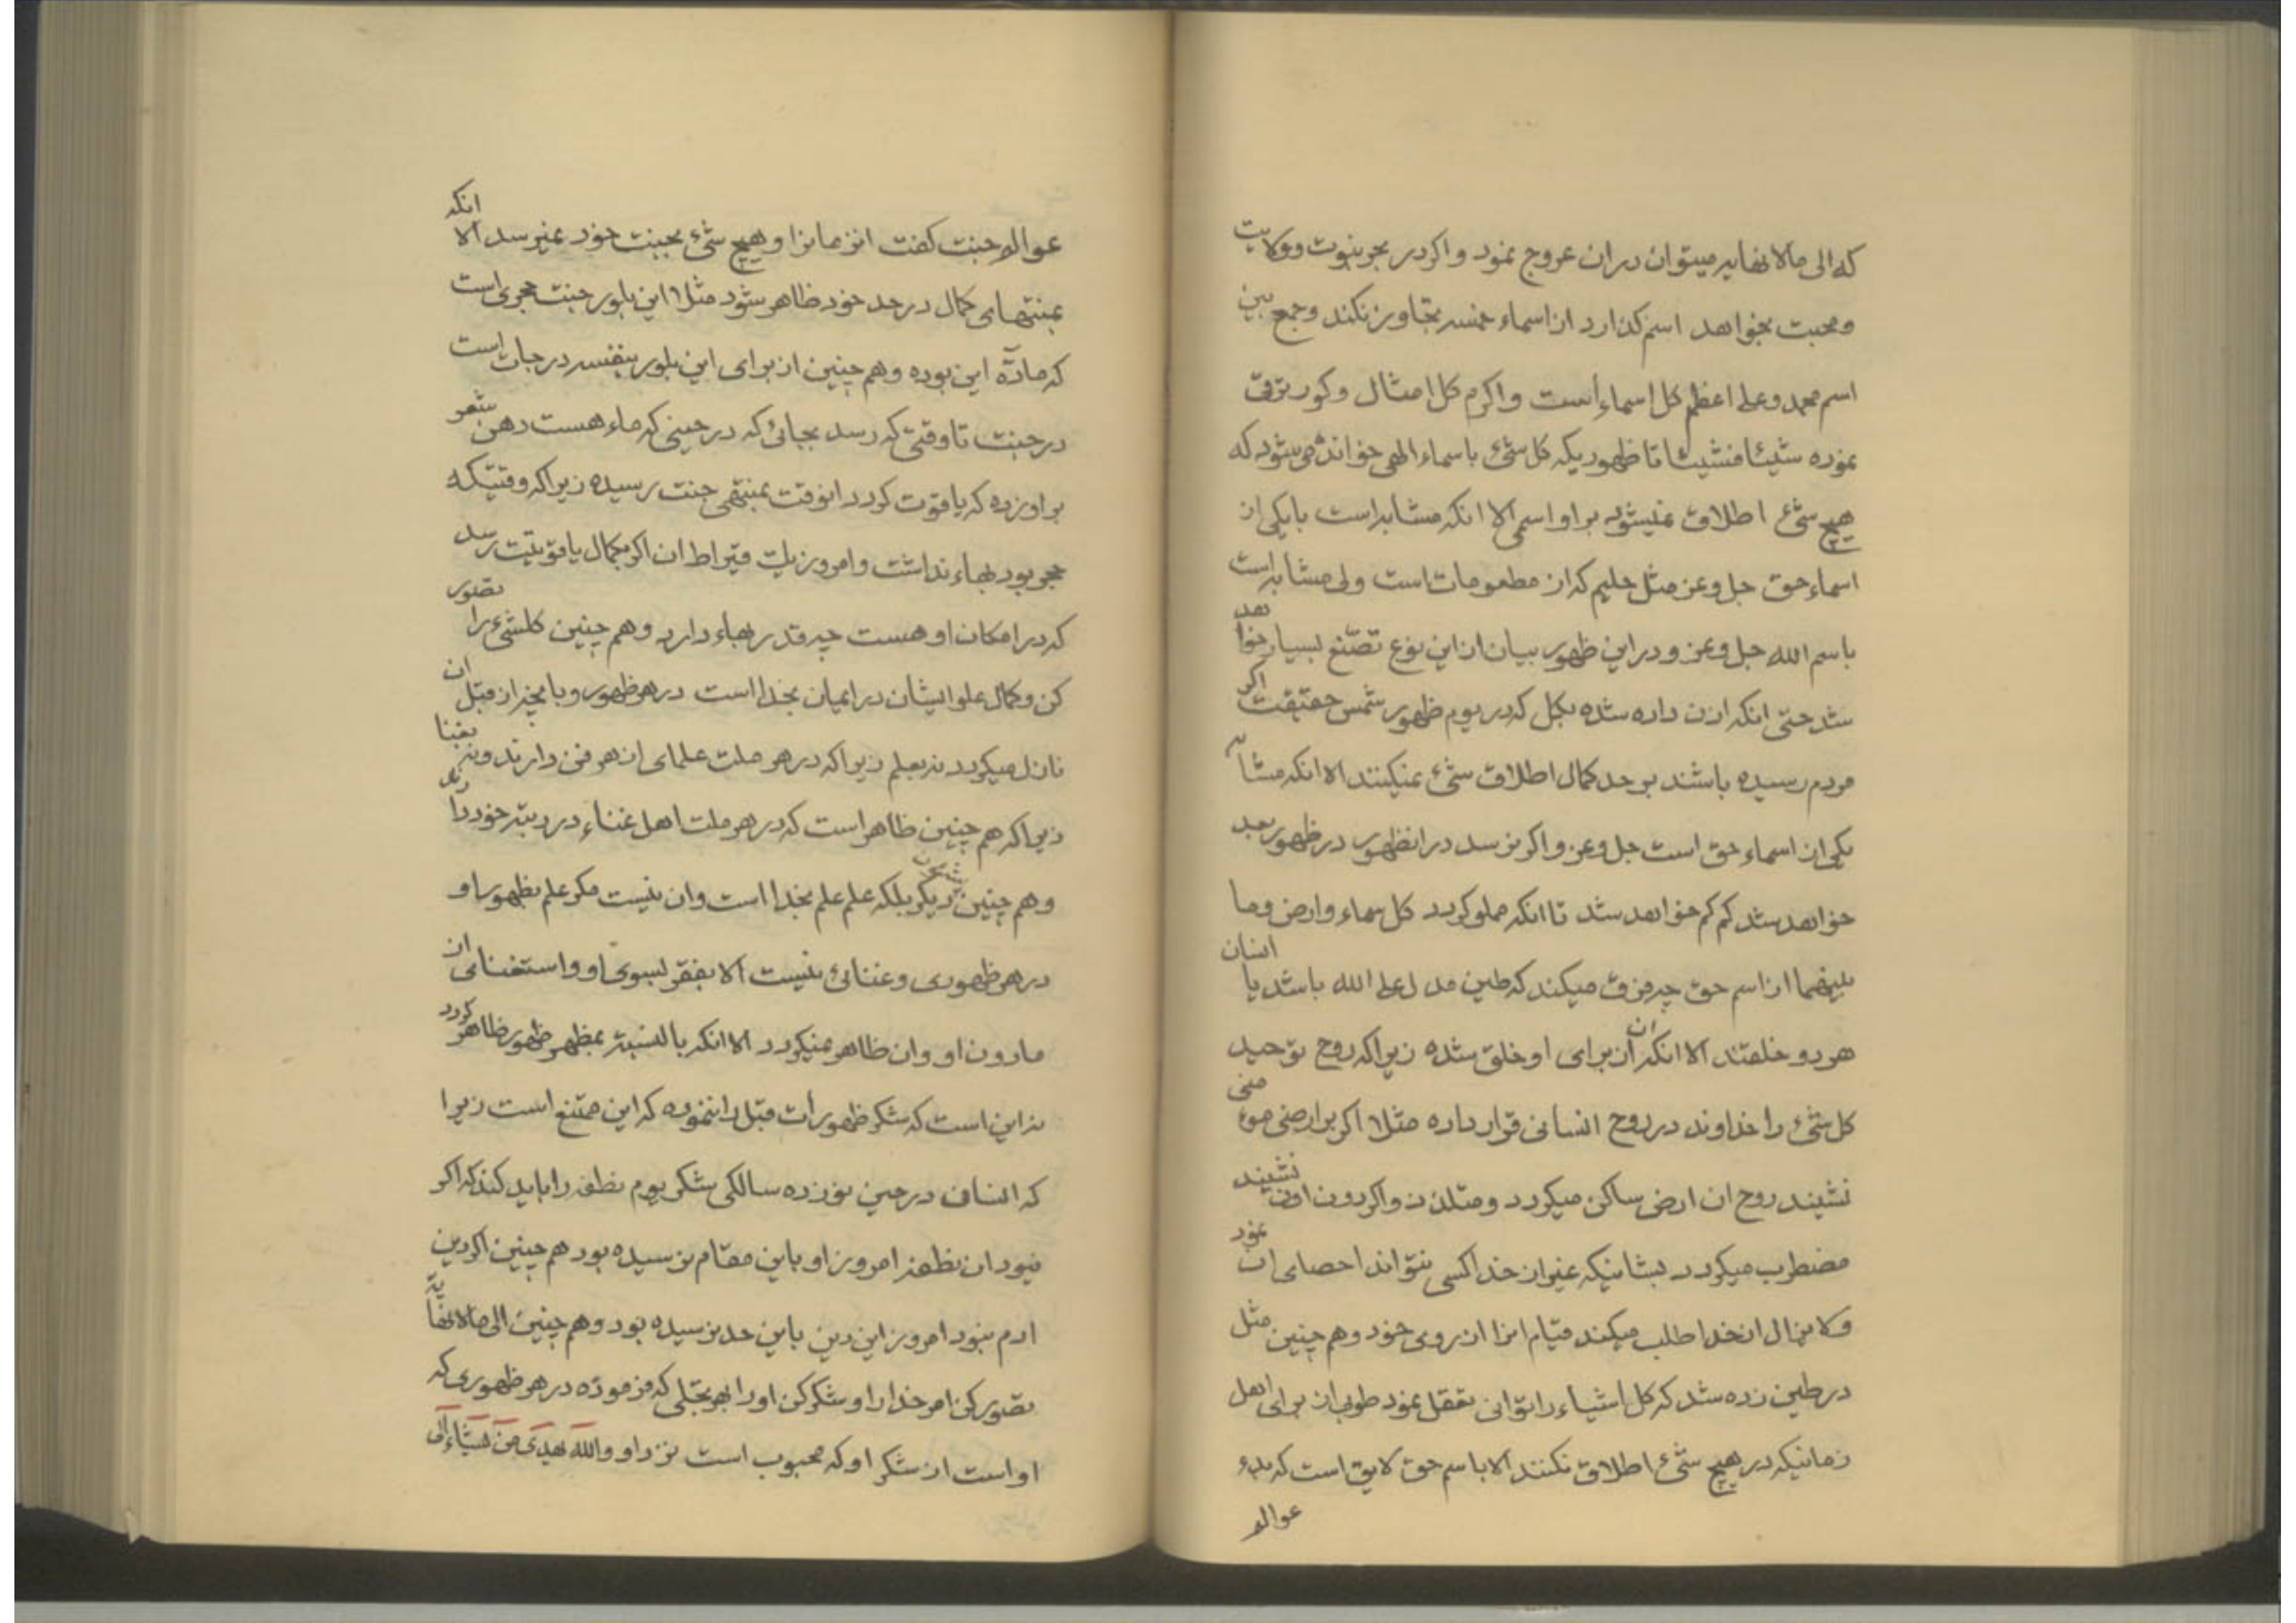 که الی مالا نهایه میتوان در ان عروج نمود و اکر در بحر نبوت و ولایت
و محبت بخواهد اسم کذارد از اسماء خمسه تجاوز نکند و جمع بین
اسم محمد و علی اعظم کل اسماء است و اکرم کل امثال و کور ترقی
نموده شیئا فشیئا تا ظهوریکه کل شئ باسماء الهی خوانده میشود که
هیچ شئ اطلاق نمیشود بر او اسمی الا انکه مشابه است با یکی از
اسماء حق جل و عز مثل حلیم که از مطعومات است ولی مشابه است
باسم الله جل و عز و در این ظهور بیان از این نوع تصنع بسیار خواهد
شد حتی انکه اذن داده شده بکل که در یوم ظهور شمس حقیقت اکر
مردم رسیده باشند بر حد کمال اطلاق شئ نمیکنند الا انکه مشابه
یکی از اسماء حق است جل و عز و اکر نرسد در انظهور در ظهور بعد
خواهد شد کم کم خواهد شد تا انکه مملو کردد کل سماء و ارض و ما
بینهما از اسم حق چه فرق میکند که طین مدل علی الله باشد یا انسان
هر دو خلقتند الا انکه ان از برای او خلق شده زیرا که روح توحید
کل شئ را خداوند در روح انسانی قرار داده مثلا اکر بر ارضی مؤمنی
نشیند روح ان ارض ساکن میکردد و متلذذ و اکر دون اون نشیند
مضطرب میکردد بشانیکه غیر از خدا کسی نتواند احصای ان نمود
و لا یزال از خدا طلب میکند قیام انرا از روی خود و هم چنین مثل
در طین زده شد که کل اشیاء را توانی تعقل نمود طوبی از برای اهل
زمانیکه در هیچ شئ اطلاق نکنند الا باسم حق لایق است که بدء
عوالم
عوالم جنت کفت انزمانرا و هیچ شئ بجنت خود نمیرسد الا انکه
بمنتهای کمال در حد خود ظاهر شود مثلا این بلور جنت حجری است
که مادّه این بوده و هم چنین از برای این بلور بنفسه درجات است
در جنت تا وقتی که رسد بجائی که در حینی که ماء هست دهن شعر
بر او زده که یاقوت کردد انوقت بمنتهی جنت رسیده زیرا که وقتیکه
حجر بود بهاء نداشت و امروز یک قیراط ان اکر بکمال یاقوتیت رسد
که در امکان او هست چه قدر بهاء دارد و هم چنین کلشئ را تصور
کن و کمال علو ایشان در ایمان بخدا است در هر ظهور و بانچیز از قبل ان
نازل میکردد نه بعلم زیرا که در هر ملت علمای از هر فن دارند و نه بغنا
زیرا که هم چنین ظاهر است که در هر ملت اهل غناء در رتبه خود دارند
و هم چنین شئون دیکر بلکه علم علم بخدا است و ان نیست مکر علم بظهور او
در هر ظهوری و غنائی نیست الا بفقر بسوی او و استغنای از
مادون او و ان ظاهر نمیکردد الا انکه بالنسبة بمظهر ظهور ظاهر کردد
نه این است که شکر ظهورات قبل را ننموده که این ممتنع است زیرا
که انسان در حین نوزده سالکی شکر یوم نطفه را باید کند که اکر
نبود ان نطفه امروز او باین مقام نرسیده بود هم چنین اکر دین
ادم نبود امروز این دین باین حد نرسیده بود و هم چنین الی مالا نهایة
تصور کن امر خدا را و شکر کن او را بهر تجلی که فرموده در هر ظهوری که
او است از شکر او که محبوب است نزد او والله یهدی من یشاء الی